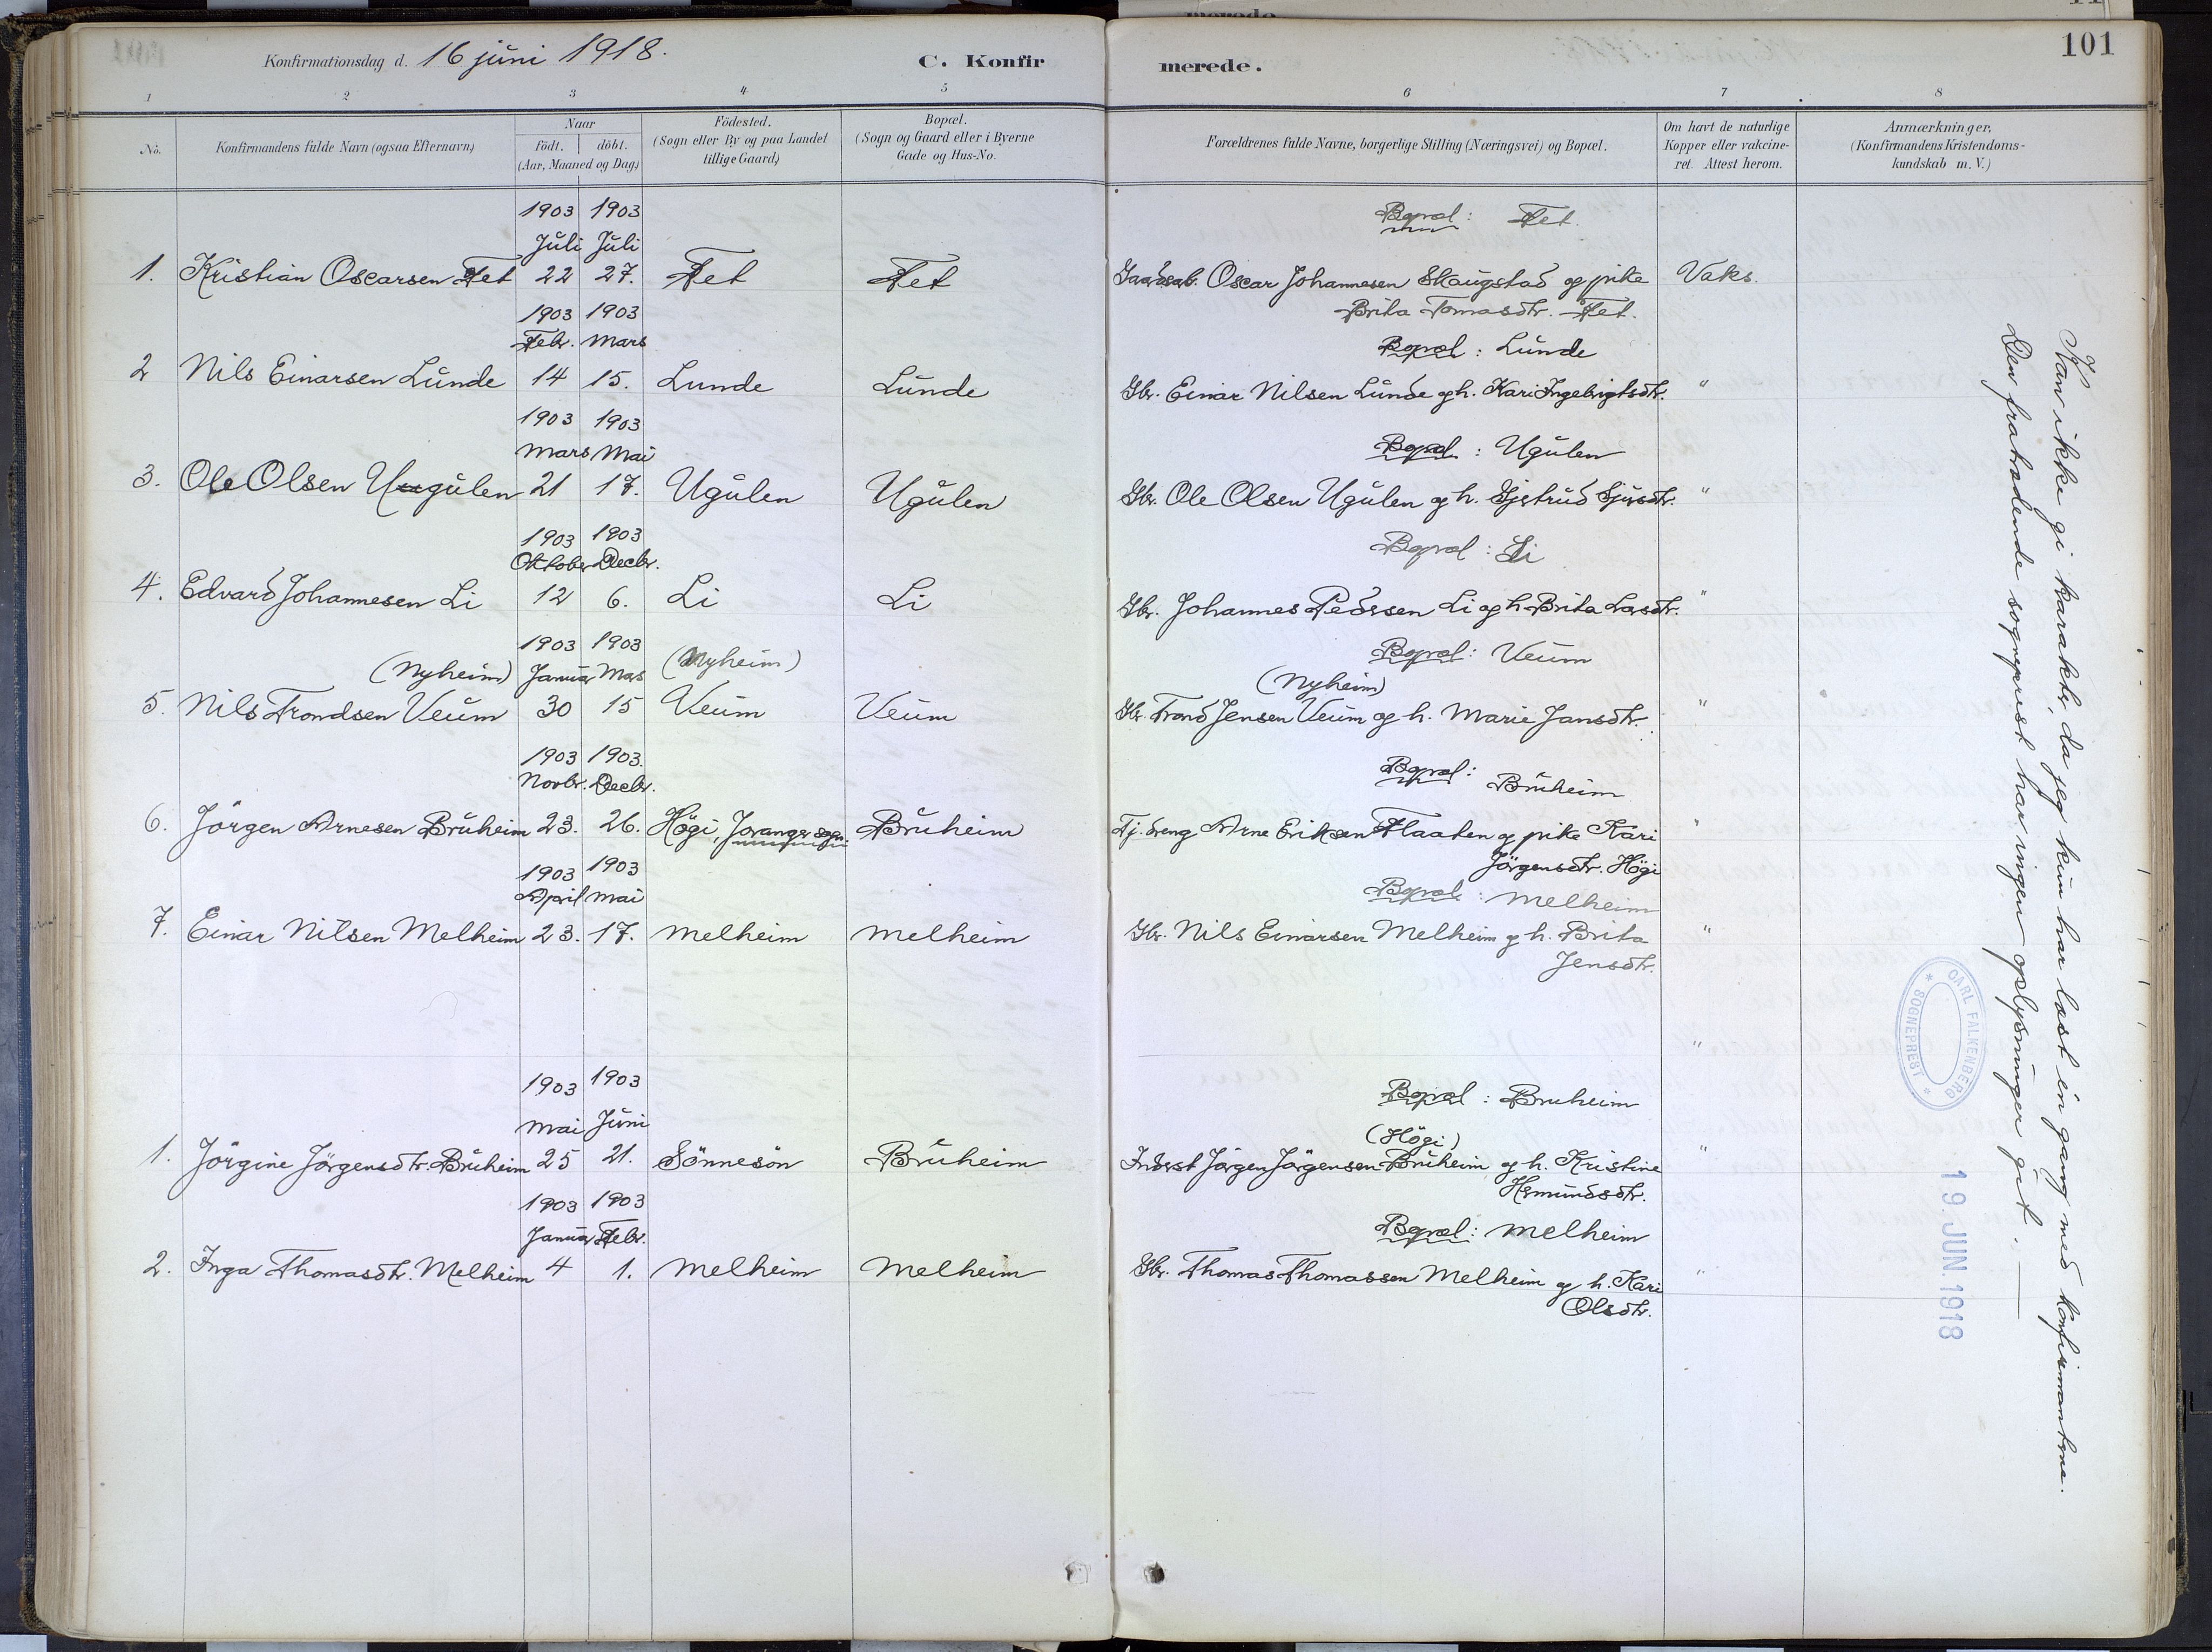 101
Konfirmationsdag d. 16 juni 1918.
C. Konfirmerede.
1 2 3 4 5 6 7 8
No.
Konfirmandens fulde Navn (ogsaa Efternavn)
Naar
födt. döbt.
(Aar, Maaned og Dag)
Födested.
(Sogn eller By og paa Landet
tillige Gaard)
Bopæl.
(Sogn og Gaard eller i Byerne
Gade og Hus-No.
Forældrenes fulde Navne, borgerlige Stilling (Næringsvei) og Bopæl.
Om havt de naturlige
Kopper eller vakcine-
ret. Attest herom.
Anmærkninger,
(Konfirmandens Kristendoms-
kundskab m. V.)
1903 1903 Bopæl: Fet.
Juli Juli
1. Kristian Oscarsen Fet 22 27. Fet Fet Oscar Johannesen Skaugstad og pike Vaks.
Brita Tomasdtr. Fet.
1903 1903
Febr. Mars Bopæl: Lunde
2 Nils Einarsen Lunde 14 15. Lunde Lunde Gbr. Einar Nilsen Lunde og h. Kari Ingebrigtsdtr. "
1903 1903
Mars Mai Bopæl: Ugulen
3. Ole Olsen Ugulen 21 17. Ugulen Ugulen Gbr. Ole Olsen Ugulen og h. Gjertrud Sjursdtr. "
1903 1903
Oktober Decbr. Bopæl: Li
4. Edvard Johannesen Li 12 6. Li Li Gbr. Johannes Pedersen Li og h. Brita Larsdtr. "
1903 1903 Bopæl: Veum
(Nyheim) Januar Mars (Nyheim) (Nyheim)
5. Nils Trondsen Veum 30 15 Veum Veum Gbr. Trond Jensen Veum og h. Marie Jansdtr. "
1903 1903.
Novbr. Decbr. Bopæl: Bruheim
6. Jörgen Arnesen Bruheim 23. 26. Högi, Joranger sogn Bruheim Tj. dreng Arne Eriksen Flaaten og pike Kari "
Jörgensdtr. Högi
1903 1903
April Mai Bopæl: Melheim
7. Einar Nilsen Melheim 23. 17. Melheim Melheim Gbr. Nils Einarsen Melheim og h. Brita "
Jensdtr.
"
1903 1903 Bopæl: Bruheim
Mai Juni (Högi)
1. Jörgine Jörgensdtr. Bruheim 25 21. Sönnesön Bruheim Inderst Jörgen Jörgensen Bruheim og h. Kristine "
Hermundsdtr.
1903 1903
Januar Febr. Bopæl: Melheim
2. Inga Thomasdtr. Melheim 4 1. Melheim Melheim Gbr. Thomas Thomassen Melheim og h. Kari "
Olsdtr.
Kan ikke gi karakter, da jeg kun har læst én gang med konfirmanterne.
Den fratrædende sogneprest har ingen oplysninger git.
CARL FALKENBERG
* SOGNEPREST *
19. JUN. 1918